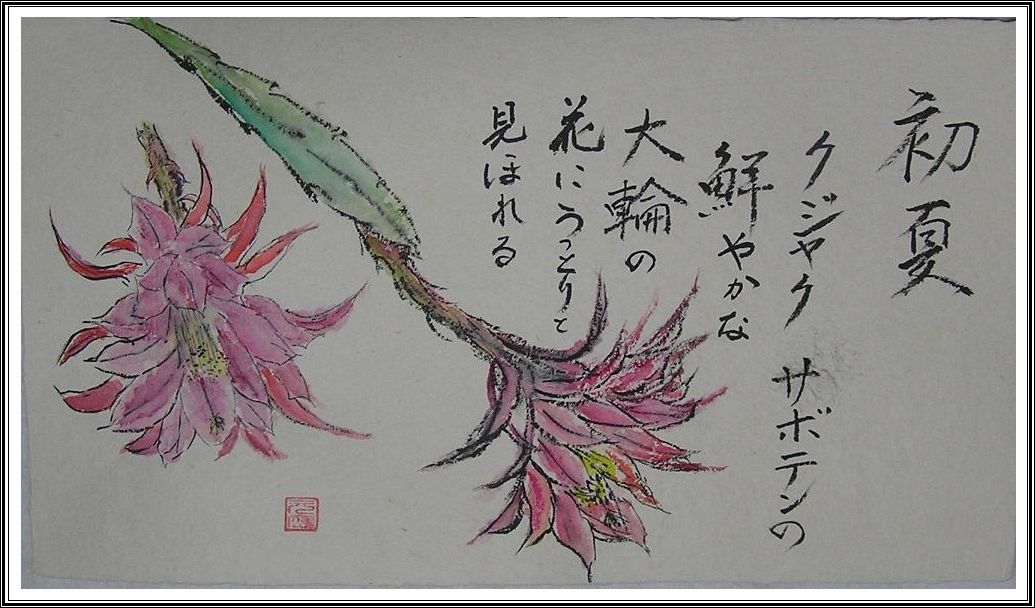 初夏
クジャク サボテンの
鮮やかな
大輪の
花にうっとりと
見ほれる